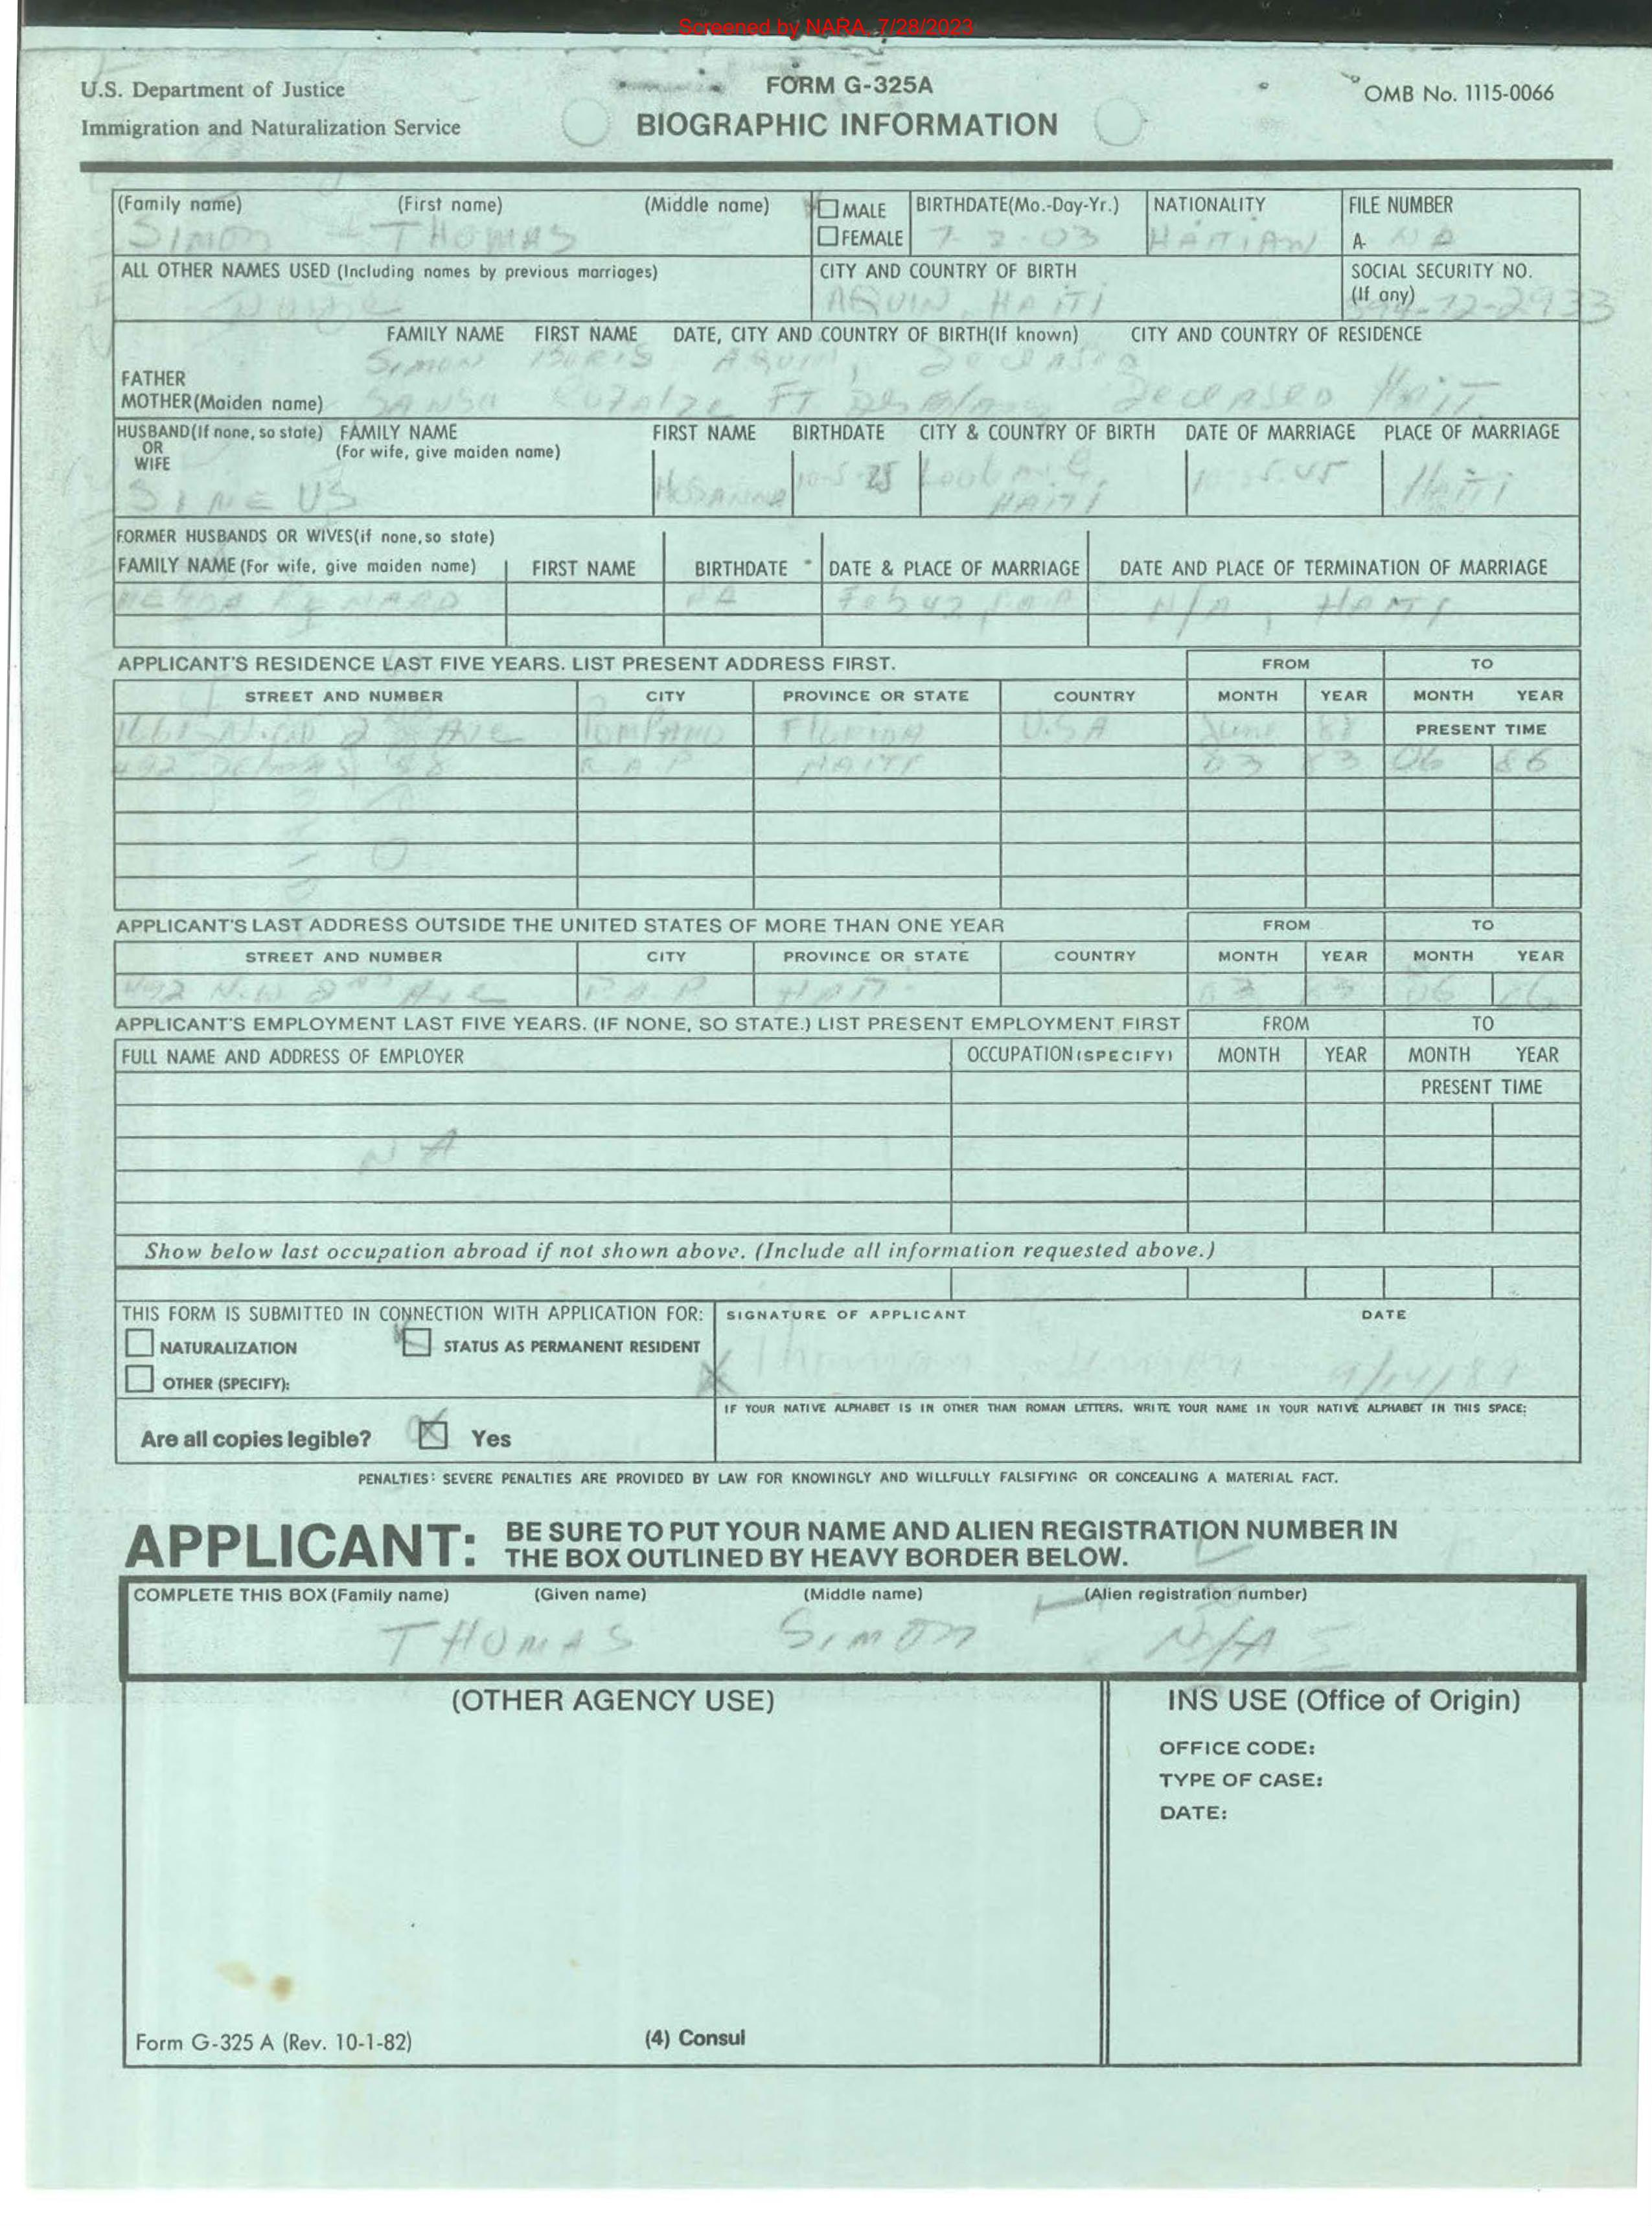 Screened by NARA, 7/28/2023
U.S. Department of Justice
Immigration and Naturalization Service
FORM G-325A
BIOGRAPHIC INFORMATION
OMB No. 1115-0066
(Family name) (First name) (Middle name) MALE BIRTHDATE(Mo.-Day-Yr.) NATIONALITY FILE NUMBER
SIMON THOMAS FEMALE 7-2-03 HAITIAN A- NA
ALL OTHER NAMES USED (Including names by previous marriages) CITY AND COUNTRY OF BIRTH SOCIAL SECURITY NO.
(If any)
None AQUIN, HAITI -72-2933
FAMILY NAME FIRST NAME DATE, CITY AND COUNTRY OF BIRTH(If known) CITY AND COUNTRY OF RESIDENCE
FATHER SIMON AQUIN, Deceased
MOTHER(Maiden name) FT Deceased Haiti
HUSBAND(If none, so state) FAMILY NAME FIRST NAME BIRTHDATE CITY & COUNTRY OF BIRTH DATE OF MARRIAGE PLACE OF MARRIAGE
OR (For wife, give maiden name)
WIFE
SINEUS 25 HAITI Haiti
FORMER HUSBANDS OR WIVES(if none, so state)
FAMILY NAME (For wife, give maiden name) FIRST NAME BIRTHDATE DATE & PLACE OF MARRIAGE DATE AND PLACE OF TERMINATION OF MARRIAGE
Feb 42 N/A, HAITI
APPLICANT'S RESIDENCE LAST FIVE YEARS. LIST PRESENT ADDRESS FIRST. FROM TO
STREET AND NUMBER CITY PROVINCE OR STATE COUNTRY MONTH YEAR MONTH YEAR
N.W 2nd Ave POMPANO FLORIDA U.S.A June PRESENT TIME
492 P.A.P HAITI 03 83 06 86
APPLICANT'S LAST ADDRESS OUTSIDE THE UNITED STATES OF MORE THAN ONE YEAR FROM TO
STREET AND NUMBER CITY PROVINCE OR STATE COUNTRY MONTH YEAR MONTH YEAR
492 N.W 2nd Ave P.A.P HAITI 03 06
APPLICANT'S EMPLOYMENT LAST FIVE YEARS. (IF NONE, SO STATE.) LIST PRESENT EMPLOYMENT FIRST FROM TO
FULL NAME AND ADDRESS OF EMPLOYER OCCUPATION (SPECIFY) MONTH YEAR MONTH YEAR
PRESENT TIME
NA
Show below last occupation abroad if not shown above. (Include all information requested above.)
THIS FORM IS SUBMITTED IN CONNECTION WITH APPLICATION FOR: SIGNATURE OF APPLICANT DATE
NATURALIZATION STATUS AS PERMANENT RESIDENT
OTHER (SPECIFY):
X Thomas Simon 9/14/87
IF YOUR NATIVE ALPHABET IS IN OTHER THAN ROMAN LETTERS, WRITE YOUR NAME IN YOUR NATIVE ALPHABET IN THIS SPACE:
Are all copies legible? X Yes
PENALTIES: SEVERE PENALTIES ARE PROVIDED BY LAW FOR KNOWINGLY AND WILLFULLY FALSIFYING OR CONCEALING A MATERIAL FACT.
APPLICANT: BE SURE TO PUT YOUR NAME AND ALIEN REGISTRATION NUMBER IN
THE BOX OUTLINED BY HEAVY BORDER BELOW.
COMPLETE THIS BOX (Family name) (Given name) (Middle name) (Alien registration number)
THOMAS SIMON N/A
(OTHER AGENCY USE) INS USE (Office of Origin)
OFFICE CODE:
TYPE OF CASE:
DATE:
Form G-325 A (Rev. 10-1-82) (4) Consul